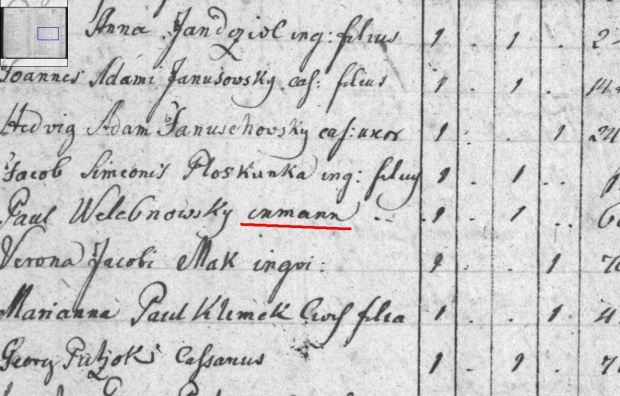 Anna Jandziol inq: filius 1 . 1 .
Joannes Adami Janusowsky cas: filius 1 . 1 .
Hedvig Adam Januschovsky cas: uxor 1 . . 1
Jacob Simeonis Ploskunka inq: filius 1 . 1 . .
Paul Welebnowsky inmann 1 . 1 . .
Verona Jacobi Mak inqvi: 1 . . 1
Marianna Paul Klimek filia 1 . . 1
Georg Cassanus 1 . 1 .